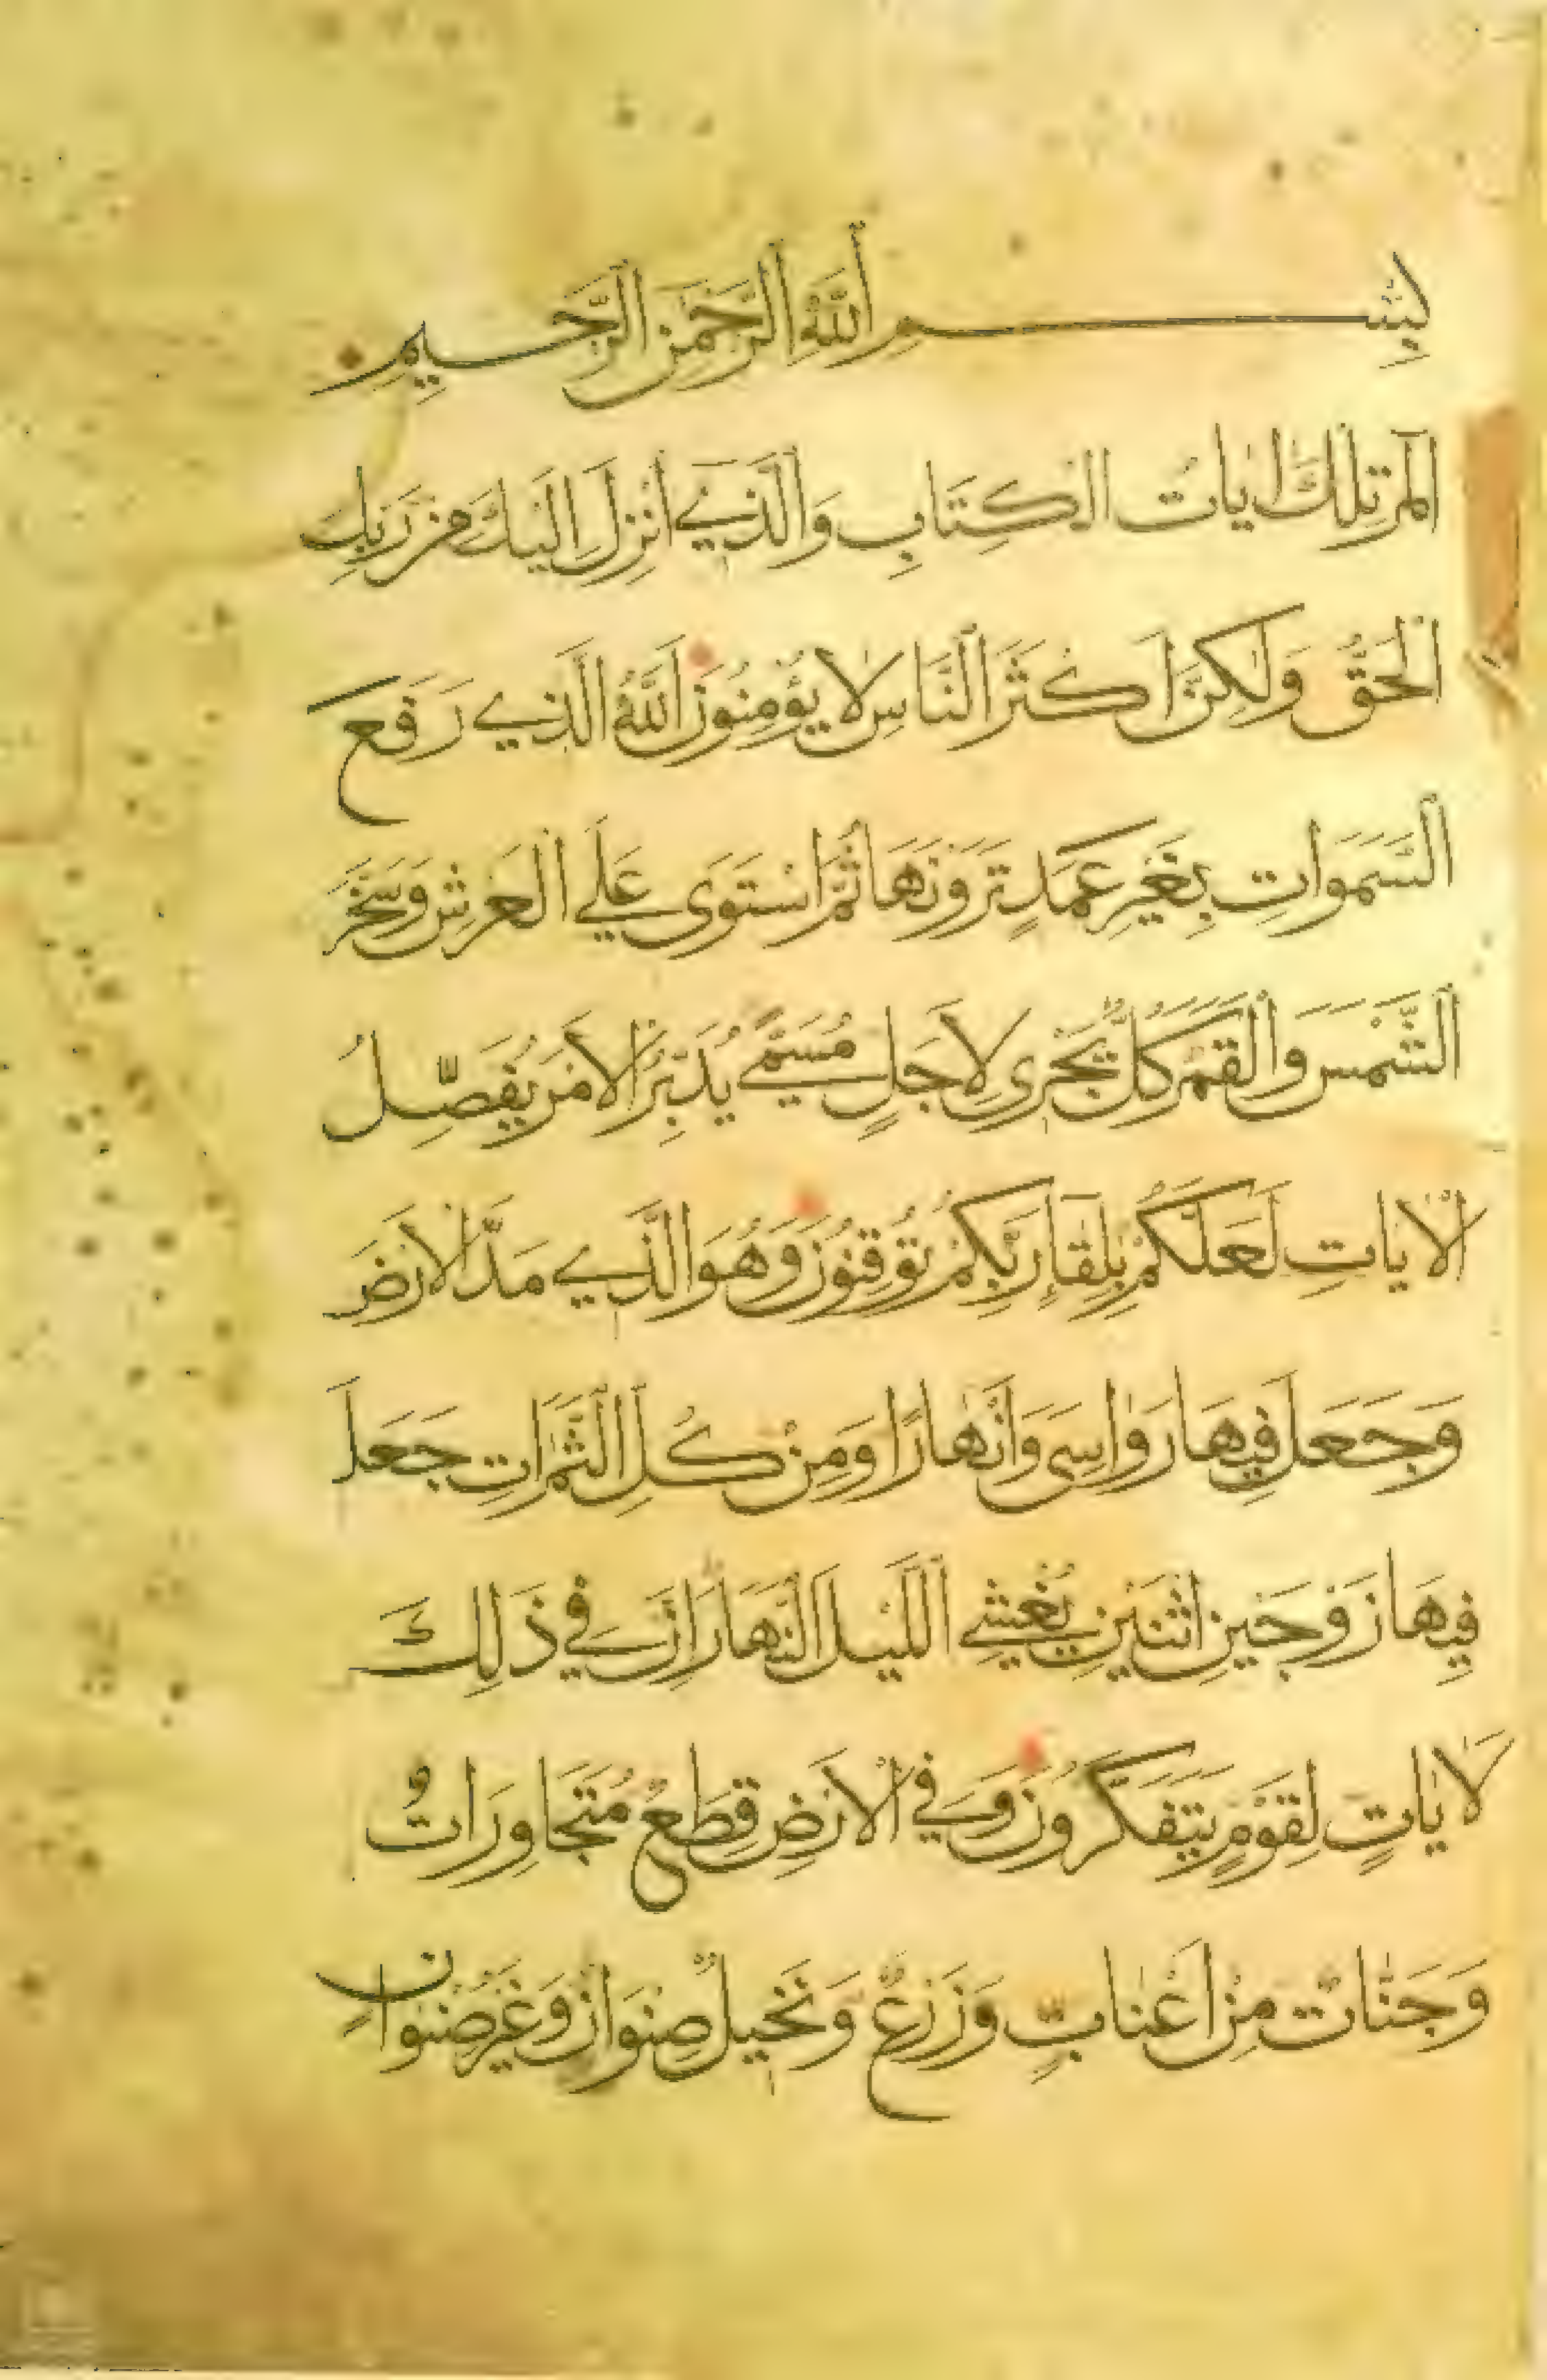 بِسْمِ اللَّهِ الرَّحْمٰنِ الرَّحِيمِ
الٓمٓر تِلْكَ اٰيَاتُ الْكِتَابِ وَالَّذِي اُنْزِلَ اِلَيْكَ مِنْ رَبِّكَ
الْحَقُّ وَلٰكِنَّ اَكْثَرَ النَّاسِ لَا يُؤْمِنُونَ اَللَّهُ الَّذِي رَفَعَ
السَّمَوَاتِ بِغَيْرِ عَمَدٍ تَرَوْنَهَا ثُمَّ اسْتَوَى عَلَي الْعَرْشِ وَسَخَّرَ
الشَّمْسَ وَالْقَمَرَ كُلٌّ يَجْرِي لِاَجَلٍ مُسَمًّي يُدَبِّرُ الْاَمْرَ يُفَصِّلُ
الْاٰيَاتِ لَعَلَّكُمْ بِلِقَاءِ رَبِّكُمْ تُوقِنُونَ وَهُوَ الَّذِي مَدَّ الْاَرْضَ
وَجَعَلَ فِيهَا رَوَاسِيَ وَاَنْهَارًا وَمِنْ كُلِّ الثَّمَرَاتِ جَعَلَ
فِيهَا زَوْجَيْنِ اثْنَيْنِ يُغْشِي اللَّيْلَ النَّهَارَ اِنَّ فِي ذَلِكَ
لَاٰيَاتٍ لِقَوْمٍ يَتَفَكَّرُونَ وَفِي الْاَرْضِ قِطَعٌ مُتَجَاوِرَاتٌ
وَجَنَّاتٌ مِنْ اَعْنَابٍ وَزَرْعٌ وَنَخِيلٌ صِنْوَانٌ وَغَيْرُ صِنْوَانٍ